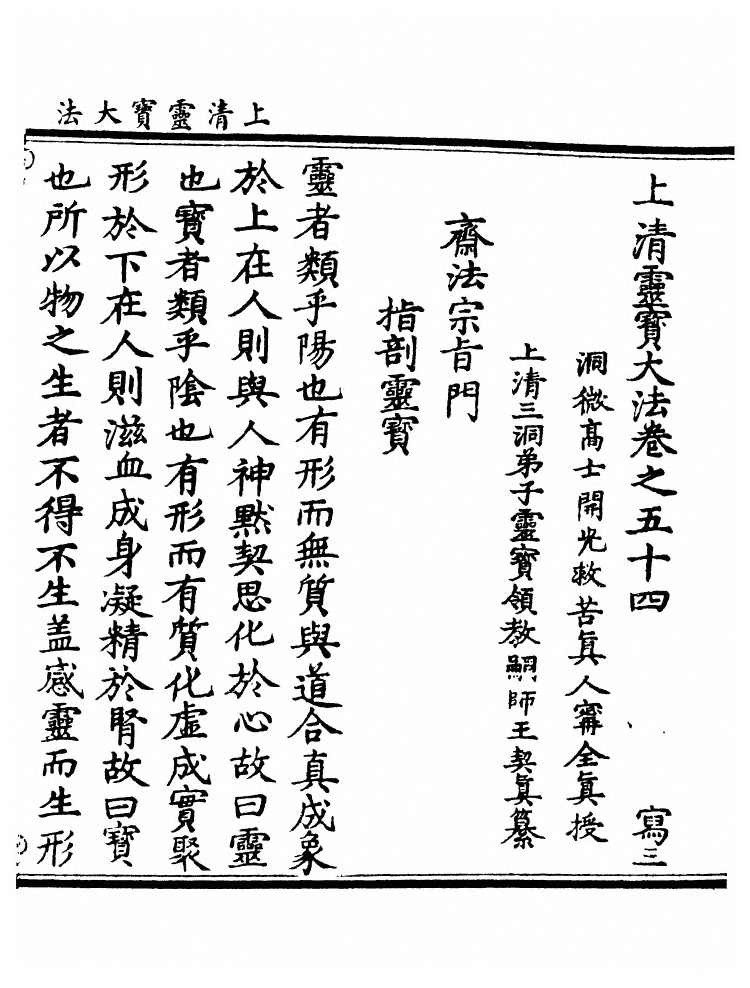 上清靈寶大法
上清靈寶大法卷之五十四 寫三
洞微高士開光救苦眞人甯全眞授
上清三洞弟子靈寶領教嗣師王契眞纂
齋法宗旨門
指剖靈寶
靈者類乎陽也有形而無質與道合真成象
於上在人則與人神黙契思化於心故曰靈
也寶者類乎陰也有形而有質化虛成實聚
形於下在人則滋血成身凝精於腎故曰寶
也所以物之生者不得不生盖感靈而生形